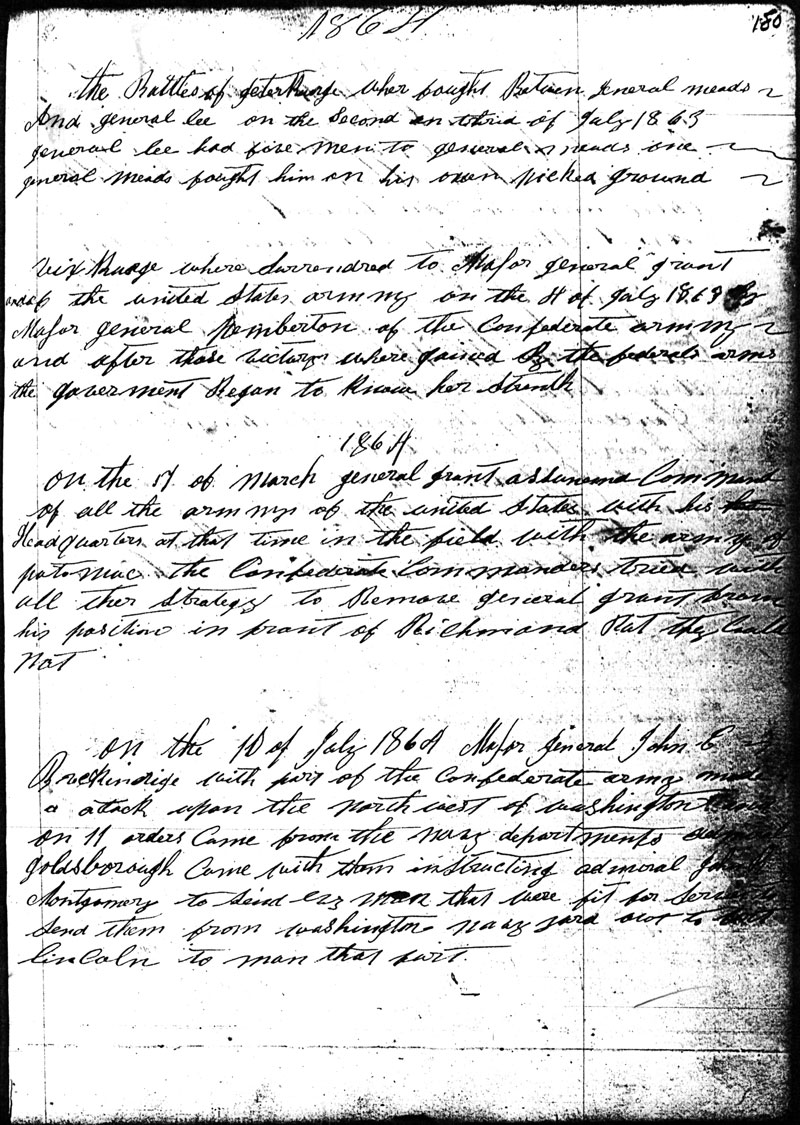 1864
180
the Battles of geterburge wher fought Betwen general meads
And general lee on the second an thrid of July 1863
general lee had five men to general meads one
general meads fought him on his own picked ground
vixburge where surrendred to Major general grant
the united States armmy on the 4 of July 1863 By
Major general Pemberton of the Confederate armmy
and after those victorys where gained By the federals arms
the goverment Began to know her strenth
1864
on the 17 of march general grant assumend Command
of all the armmys of the united States with his
Headquarters at that time in the field with the army of
potomac the Confederate Commanders tried with
all ther strategy to Remove general grant from
his position in front of Richmond But they Could
Not
on the 10 of July 1864 Major general John C
Breckindige with part of the Confederate army made
a atack upon the north west of washington
on 11 orders Came from the navy departments
goldsborough Came with them instructing admoral
Montgomery to send evy man that were fit for service
send them from washington navy yard over to fort
lincoln to man that fort